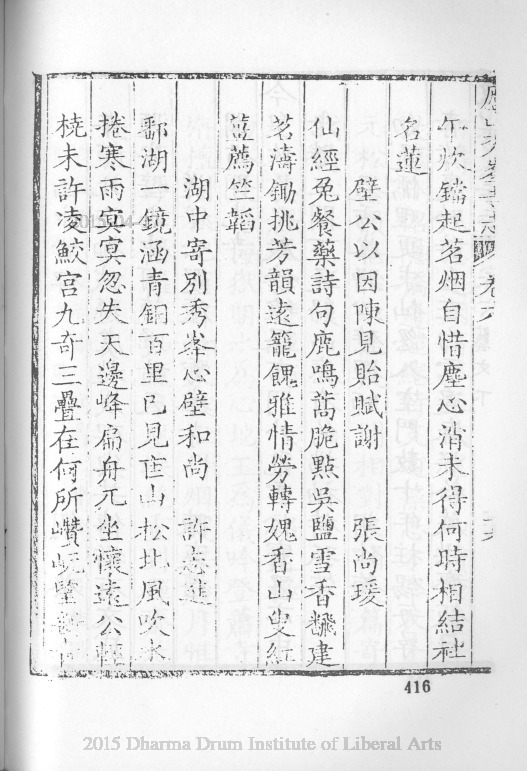 午炊鐺起茗烟自惜塵心消未得何時相結社
名蓮
壁公以因陳見貽賦謝 張尚瑗
仙經兔餐藥詩句鹿鳴蒿脆點吳鹽雪香飜建
茗濤鋤挑芳韻遠籠餽雅情勞轉媿香山叟紅
藍薦竺韜
湖中寄別秀峯心壁和尚 許志進
鄱湖一鏡涵青銅百里已見匡山松北風吹水
捲寒雨寞寞忽失天邊峰扁舟兀坐懷遠公輕
橈未許凌鮫宮九奇三疊在何所巑岏
416
2015 Dharma Drum Institute of Liberal Arts